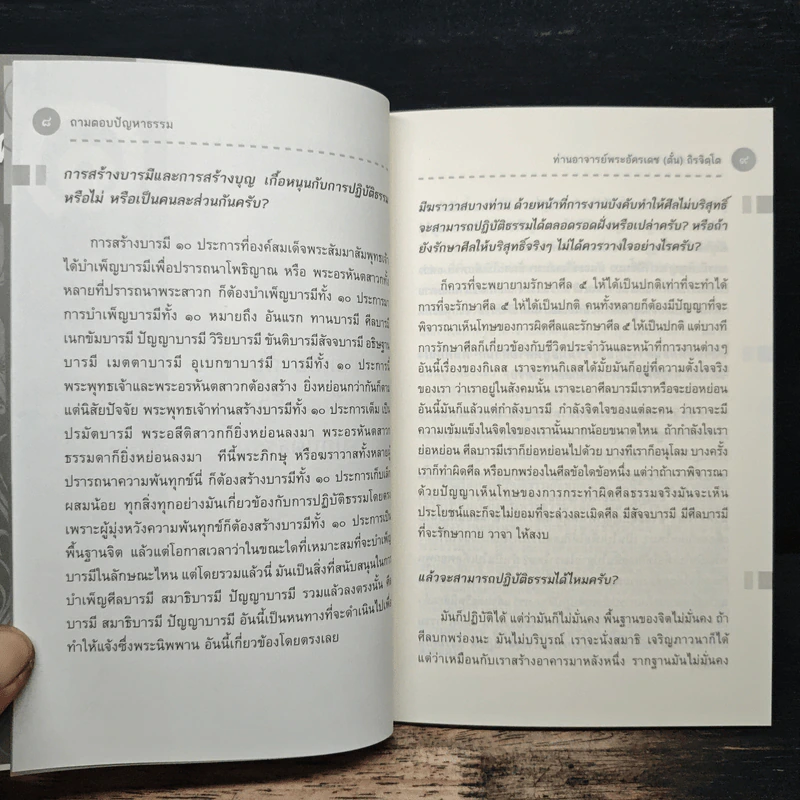 ๘
ถามตอบปัญหาธรรม
การสร้างบารมีและการสร้างบุญ เกื้อหนุนกับการปฏิบัติธรรม
หรือไม่ หรือเป็นคนละส่วนกันครับ?
การสร้างบารมี ๑๐ ประการที่องค์สมเด็จพระสัมมาสัมพุทธเจ้า
ได้บำเพ็ญบารมีเพื่อปรารถนาโพธิญาณ หรือ พระอรหันตสาวกทั้ง
หลายที่ปรารถนาพระสาวก ก็ต้องบำเพ็ญบารมีทั้ง ๑๐ ประการมา
การบำเพ็ญบารมีทั้ง ๑๐ หมายถึง อันแรก ทานบารมี ศีลบารมี
เนกขัมบารมี ปัญญาบารมี วิริยบารมี ขันติบารมีสัจบารมี อธิษฐาน
บารมี เมตตาบารมี อุเบกขาบารมี บารมีทั้ง ๑๐ ประการนี้
พระพุทธเจ้าและพระอรหันตสาวกต้องสร้าง ยิ่งหย่อนกว่ากันก็ตาม
แต่นิสัยปัจจัย พระพุทธเจ้าท่านสร้างบารมีทั้ง ๑๐ ประการเต็ม เป็น
ปรมัตบารมี พระอสีติสาวกก็ยิ่งหย่อนลงมา พระอรหันตสาวก
ธรรมดาก็ยิ่งหย่อนลงมา ทีนี้พระภิกษุ หรือฆราวาสทั้งหลายผู้
ปรารถนาความพ้นทุกข์นี่ ก็ต้องสร้างบารมีทั้ง ๑๐ ประการเก็บเล็ก
ผสมน้อย ทุกสิ่งทุกอย่างมันเกี่ยวข้องกับการปฏิบัติธรรมโดยตรง
เพราะผู้มุ่งหวังความพ้นทุกข์ก็ต้องสร้างบารมีทั้ง ๑๐ ประการเป็น
พื้นฐานจิต แล้วแต่โอกาสเวลาว่าในขณะใดที่เหมาะสมที่จะบำเพ็ญ
บารมีในลักษณะไหน แต่โดยรวมแล้วนี่ มันเป็นสิ่งที่สนับสนุนในการ
บำเพ็ญศีลบารมี สมาธิบารมี ปัญญาบารมี รวมแล้วลงตรงนั้น ศีล
บารมี สมาธิบารมี ปัญญาบารมี อันนี้เป็นหนทางที่จะดำเนินไปเพื่อ
ทำให้แจ้งซึ่งพระนิพพาน อันนี้เกี่ยวข้องโดยตรงเลย
ท่านอาจารย์พระอัครเดช (ตั๋น) ถิรจิตฺโต
๙
มีฆราวาสบางท่าน ด้วยหน้าที่การงานบังคับทำให้ศีลไม่บริสุทธิ์
จะสามารถปฏิบัติธรรมได้ตลอดรอดฝั่งหรือเปล่าครับ? หรือถ้า
ยังรักษาศีลให้บริสุทธิ์จริงๆ ไม่ได้ควรวางใจอย่างไรครับ?
ก็ควรที่จะพยายามรักษาศีล ๕ ให้ได้เป็นปกติเท่าที่จะทำได้
การที่จะรักษาศีล ๕ ให้ได้เป็นปกติ คนทั้งหลายก็ต้องมีปัญญาที่จะ
พิจารณาเห็นโทษของการผิดศีลและรักษาศีล ๕ ให้เป็นปกติ แต่บางที
การรักษาศีลก็เกี่ยวข้องกับชีวิตประจำวันและหน้าที่การงานต่างๆ
อันนี้เรื่องของกิเลส เราจะทนกิเลสได้มั้ยมันก็อยู่ที่ความตั้งใจจริง
ของเรา ว่าเราอยู่ในสังคมนั้น เราจะเอาศีลบารมีเราหรือจะย่อหย่อน
อันนี้มันก็แล้วแต่กำลังบารมี กำลังจิตใจของแต่ละคน ว่าเราจะมี
ความเข้มแข็งในจิตใจของเรานั้นมากน้อยขนาดไหน ถ้ากำลังใจเรา
ย่อหย่อน ศีลบารมีเราก็ย่อหย่อนไปด้วย บางทีเราก็อนุโลม บางครั้ง
เราก็ทำผิดศีล หรือบกพร่องในศีลข้อใดข้อหนึ่ง แต่ว่าถ้าเราพิจารณา
ด้วยปัญญาเห็นโทษของการกระทำผิดศีลธรรมจริงมันจะเห็น
ประโยชน์และก็จะไม่ยอมที่จะล่วงละเมิดศีล มีสัจจบารมี มีศีลบารมี
ที่จะรักษากาย วาจา ให้สงบ
แล้วจะสามารถปฏิบัติธรรมได้ไหมครับ?
มันก็ปฏิบัติได้ แต่ว่ามันก็ไม่มั่นคง พื้นฐานของจิตไม่มั่นคง ถ้า
ศีลบกพร่องนะ มันไม่บริบูรณ์ เราจะนั่งสมาธิ เจริญภาวนาก็ได้
แต่ว่าเหมือนกับเราสร้างอาคารมาหลังหนึ่ง รากฐานมันไม่มั่นคง